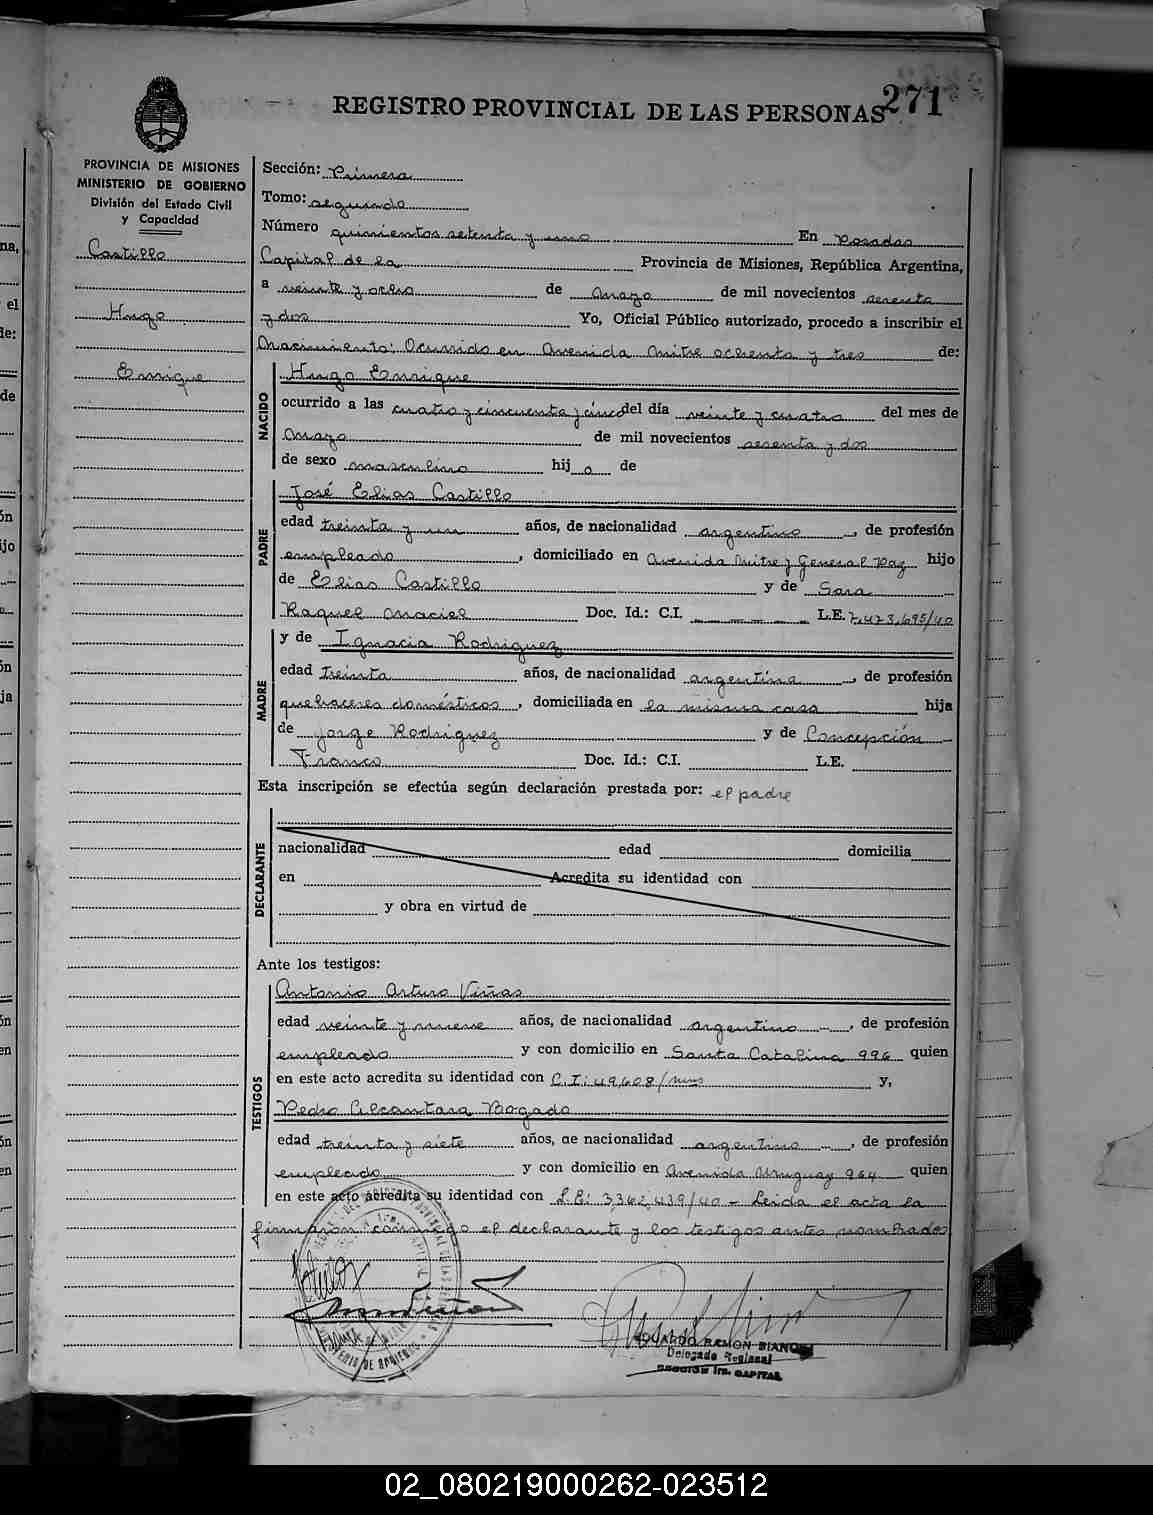 271
REGISTRO PROVINCIAL DE LAS PERSONAS
PROVINCIA DE MISIONES
MINISTERIO DE GOBIERNO
División del Estado Civil
y Capacidad
Castillo
Hugo
Enrique
Sección: Primera
Tomo: segundo
Número quinientos setenta y uno En Posadas
Capital de la Provincia de Misiones, República Argentina,
a veinte y ocho de Mayo de mil novecientos sesenta
y dos Yo, Oficial Público autorizado, procedo a inscribir el
Nacimiento: Ocurrido en Avenida Mitre ochenta y tres de:
NACIDO
Hugo Enrique
ocurrido a las cuatro y cincuenta y cinco del día veinte y cuatro del mes de
Mayo de mil novecientos sesenta y dos
de sexo masculino hij o de
PADRE
José Elias Castillo
edad treinta y un años, de nacionalidad argentino, de profesión
empleado, domiciliado en Avenida Mitre y General Paz hijo
de Elias Castillo y de Sara
Raquel Maciel Doc. Id.: C.I. — — — — — L.E. 7.423.695/40
MADRE
y de Ignacia Rodriguez
edad treinta años, de nacionalidad argentina, de profesión
quehaceres domésticos, domiciliada en la misma casa hija
de Jorge Rodriguez y de Concepción
Franco Doc. Id.: C.I. L.E.
Esta inscripción se efectúa según declaración prestada por: el padre
DECLARANTE
nacionalidad edad domicilia
en Acredita su identidad con
y obra en virtud de
Ante los testigos:
TESTIGOS
Antonio Arturo Viñas
edad veinte y nueve años, de nacionalidad argentino, de profesión
empleado y con domicilio en Santa Catalina 996 quien
en este acto acredita su identidad con C.I: 49.608/mns y,
Pedro Alcantara Bogado
edad treinta y siete años, de nacionalidad argentino, de profesión
empleado y con domicilio en Avenida Uruguay 964 quien
en este acto acredita su identidad con L.E: 3.362.439/40 - Leida el acta la
firmaron conmigo el declarante y los testigos antes nombrados
EDUARDO RAMON BIANCHI
Delegado Regional
SECCION 1ra. CAPITAL
02_080219000262-023512